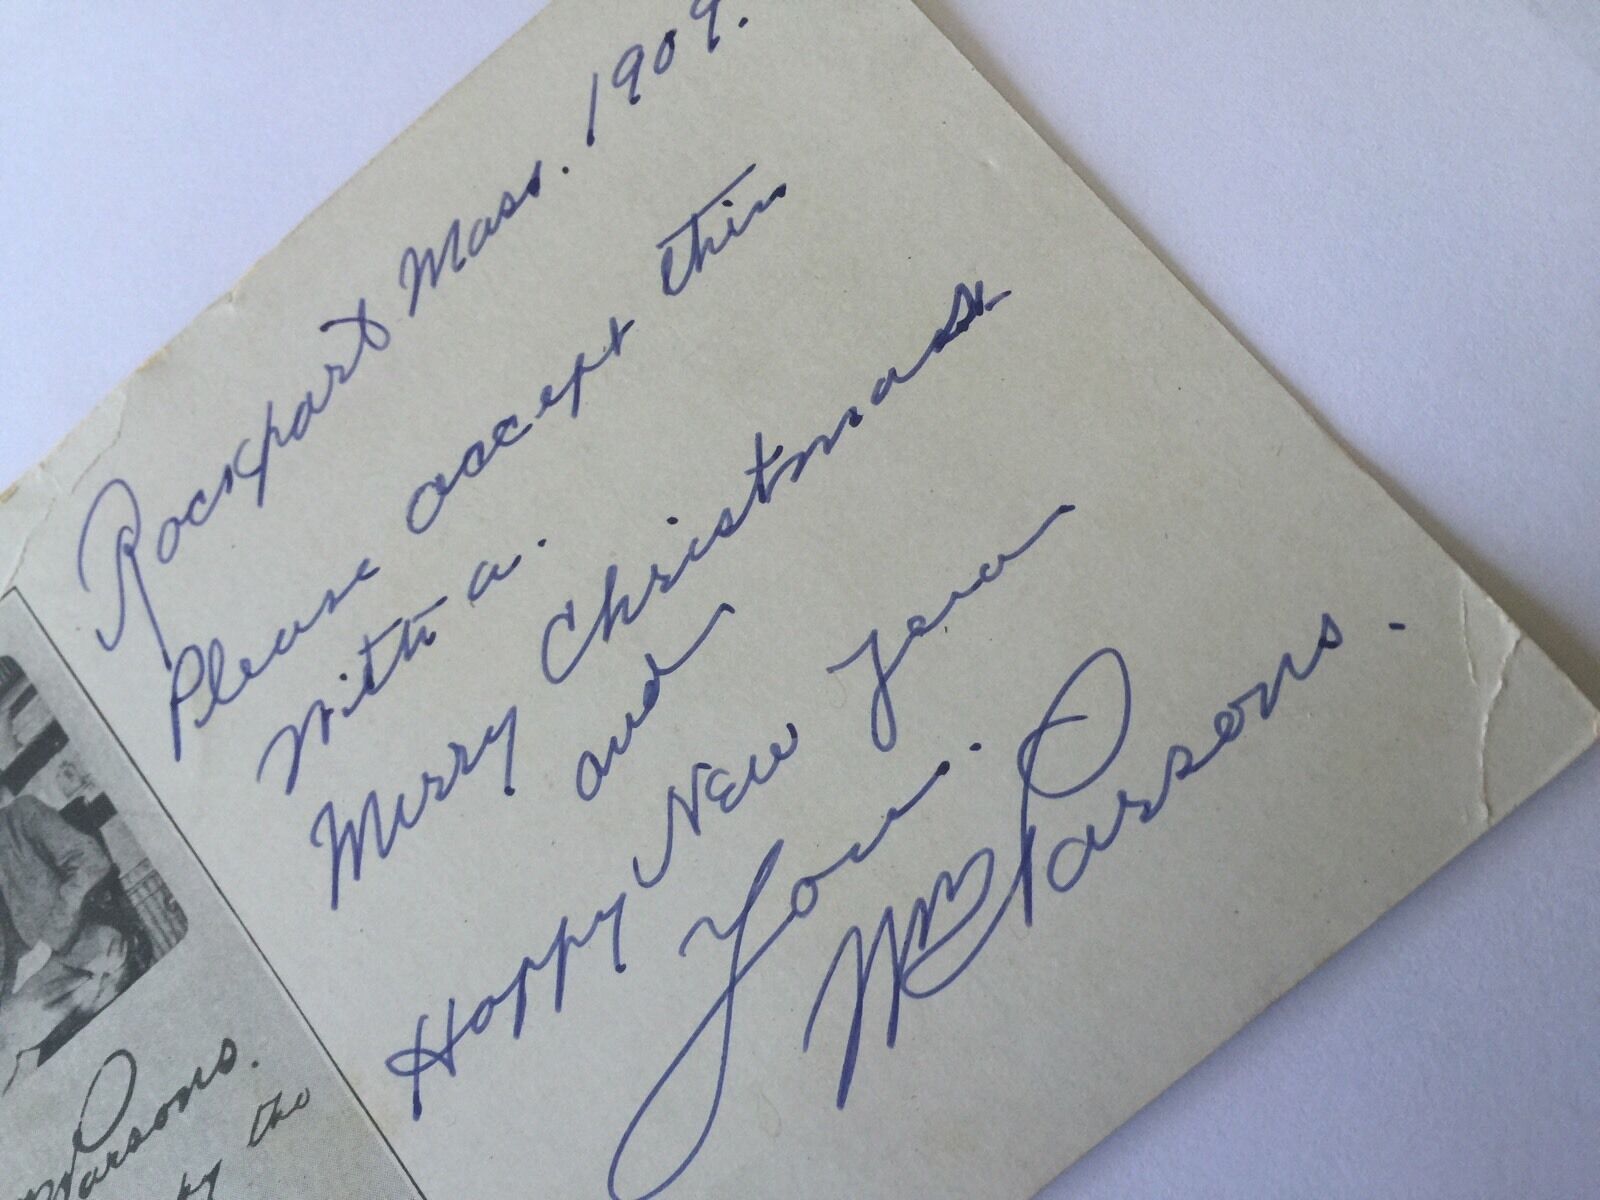 Rockport Mass. 1909.
Please accept this
with a.
Merry Christmas
and
Happy New Year
Your.
WM Parsons.
Parsons.
by the